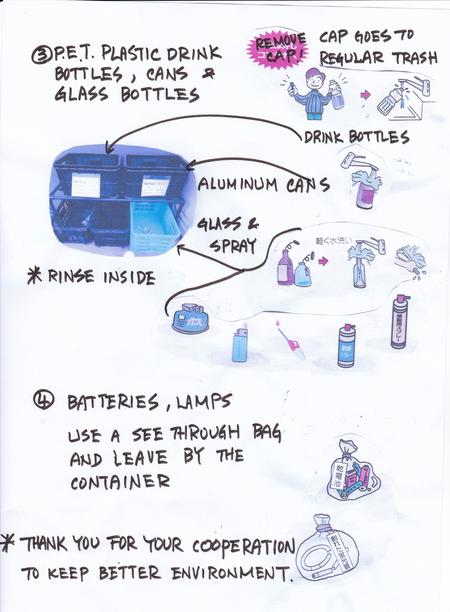 ③ P.E.T. PLASTIC DRINK
BOTTLES, CANS &
GLASS BOTTLES
REMOVE
CAP!
CAP GOES TO
REGULAR TRASH
DRINK BOTTLES
ALUMINUM CANS
GLASS &
SPRAY
軽く水洗い
* RINSE INSIDE
ガス
④ BATTERIES, LAMPS
USE A SEE THROUGH BAG
AND LEAVE BY THE
CONTAINER
乾電池
* THANK YOU FOR YOUR COOPERATION
TO KEEP BETTER ENVIRONMENT.